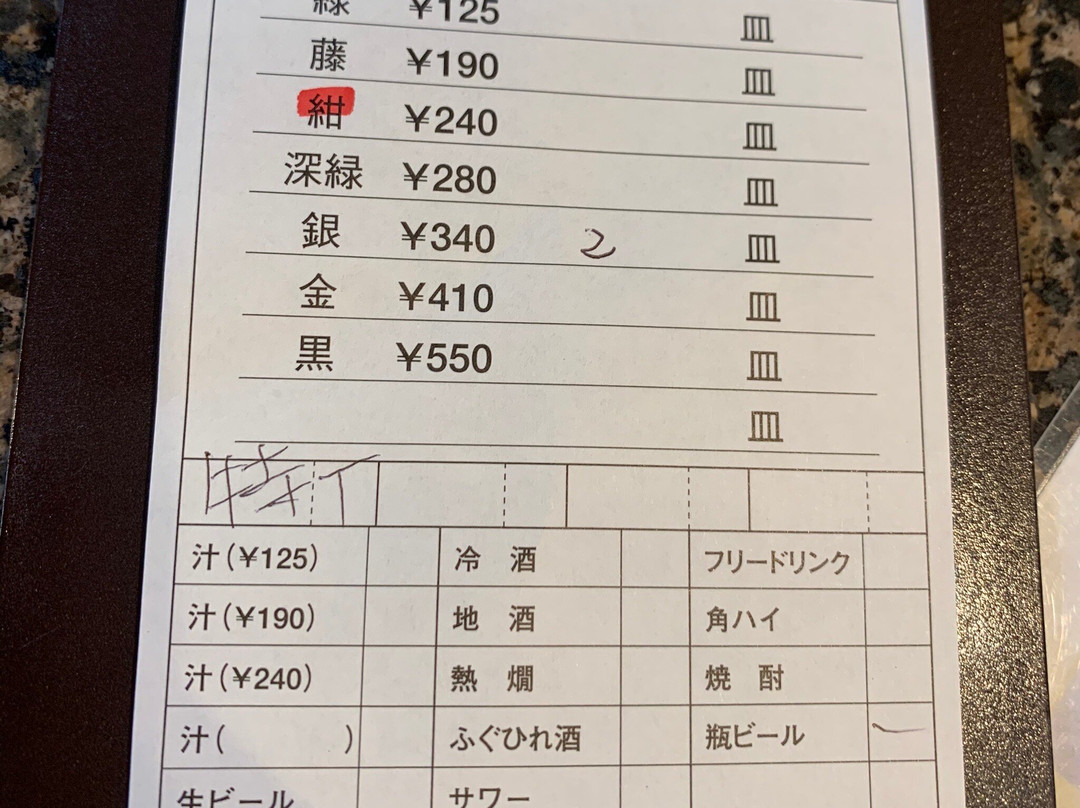 緑 ¥125 皿
藤 ¥190 皿
紺 ¥240 皿
深緑 ¥280 皿
銀 ¥340 2 皿
金 ¥410 皿
黒 ¥550 皿
皿
汁(¥125) 冷 酒 フリードリンク
汁(¥190) 地 酒 角ハイ
汁(¥240) 熱 燗 焼 酎
汁( ) ふぐひれ酒 瓶ビール 一
生ビール サワー